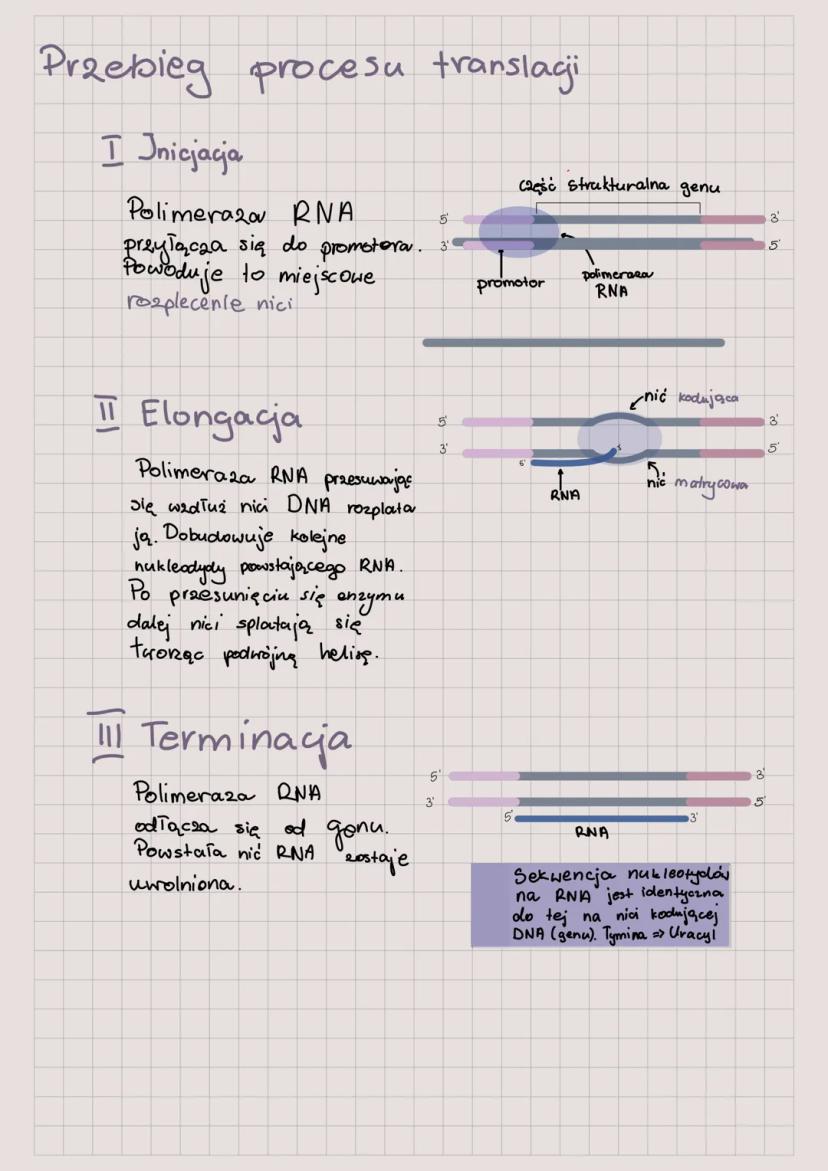 Przebieg procesu translacji
I Inicjacja
Polimeraza RNA
przyłącza się do promotora.
Powoduje to miejscowe
rozplecenie nici
część strukturalna genu
5' 3'
3' 5'
promotor
polimeraza
RNA
II Elongacja
Polimeraza RNA przesuwając
się wzdłuż nici DNA rozplata
ją. Dobudowuje kolejne
nukleodydy powstającego RNA.
Po przesunięciu się enzymu
dalej nici splatają się
tworząc podwójną helisę.
nić kodująca
5' 3'
3' 3' 5'
5'
RNA
nić matrycowa
III Terminacja
Polimeraza RNA
odłącza się od genu.
Powstała nić RNA zostaje
uwolniona.
5' 3'
3' 5'
5' 3'
RNA
Sekwencja nukleotydów
na RNA jest identyczna
do tej na nici kodującej
DNA (genu). Tymina => Uracyl